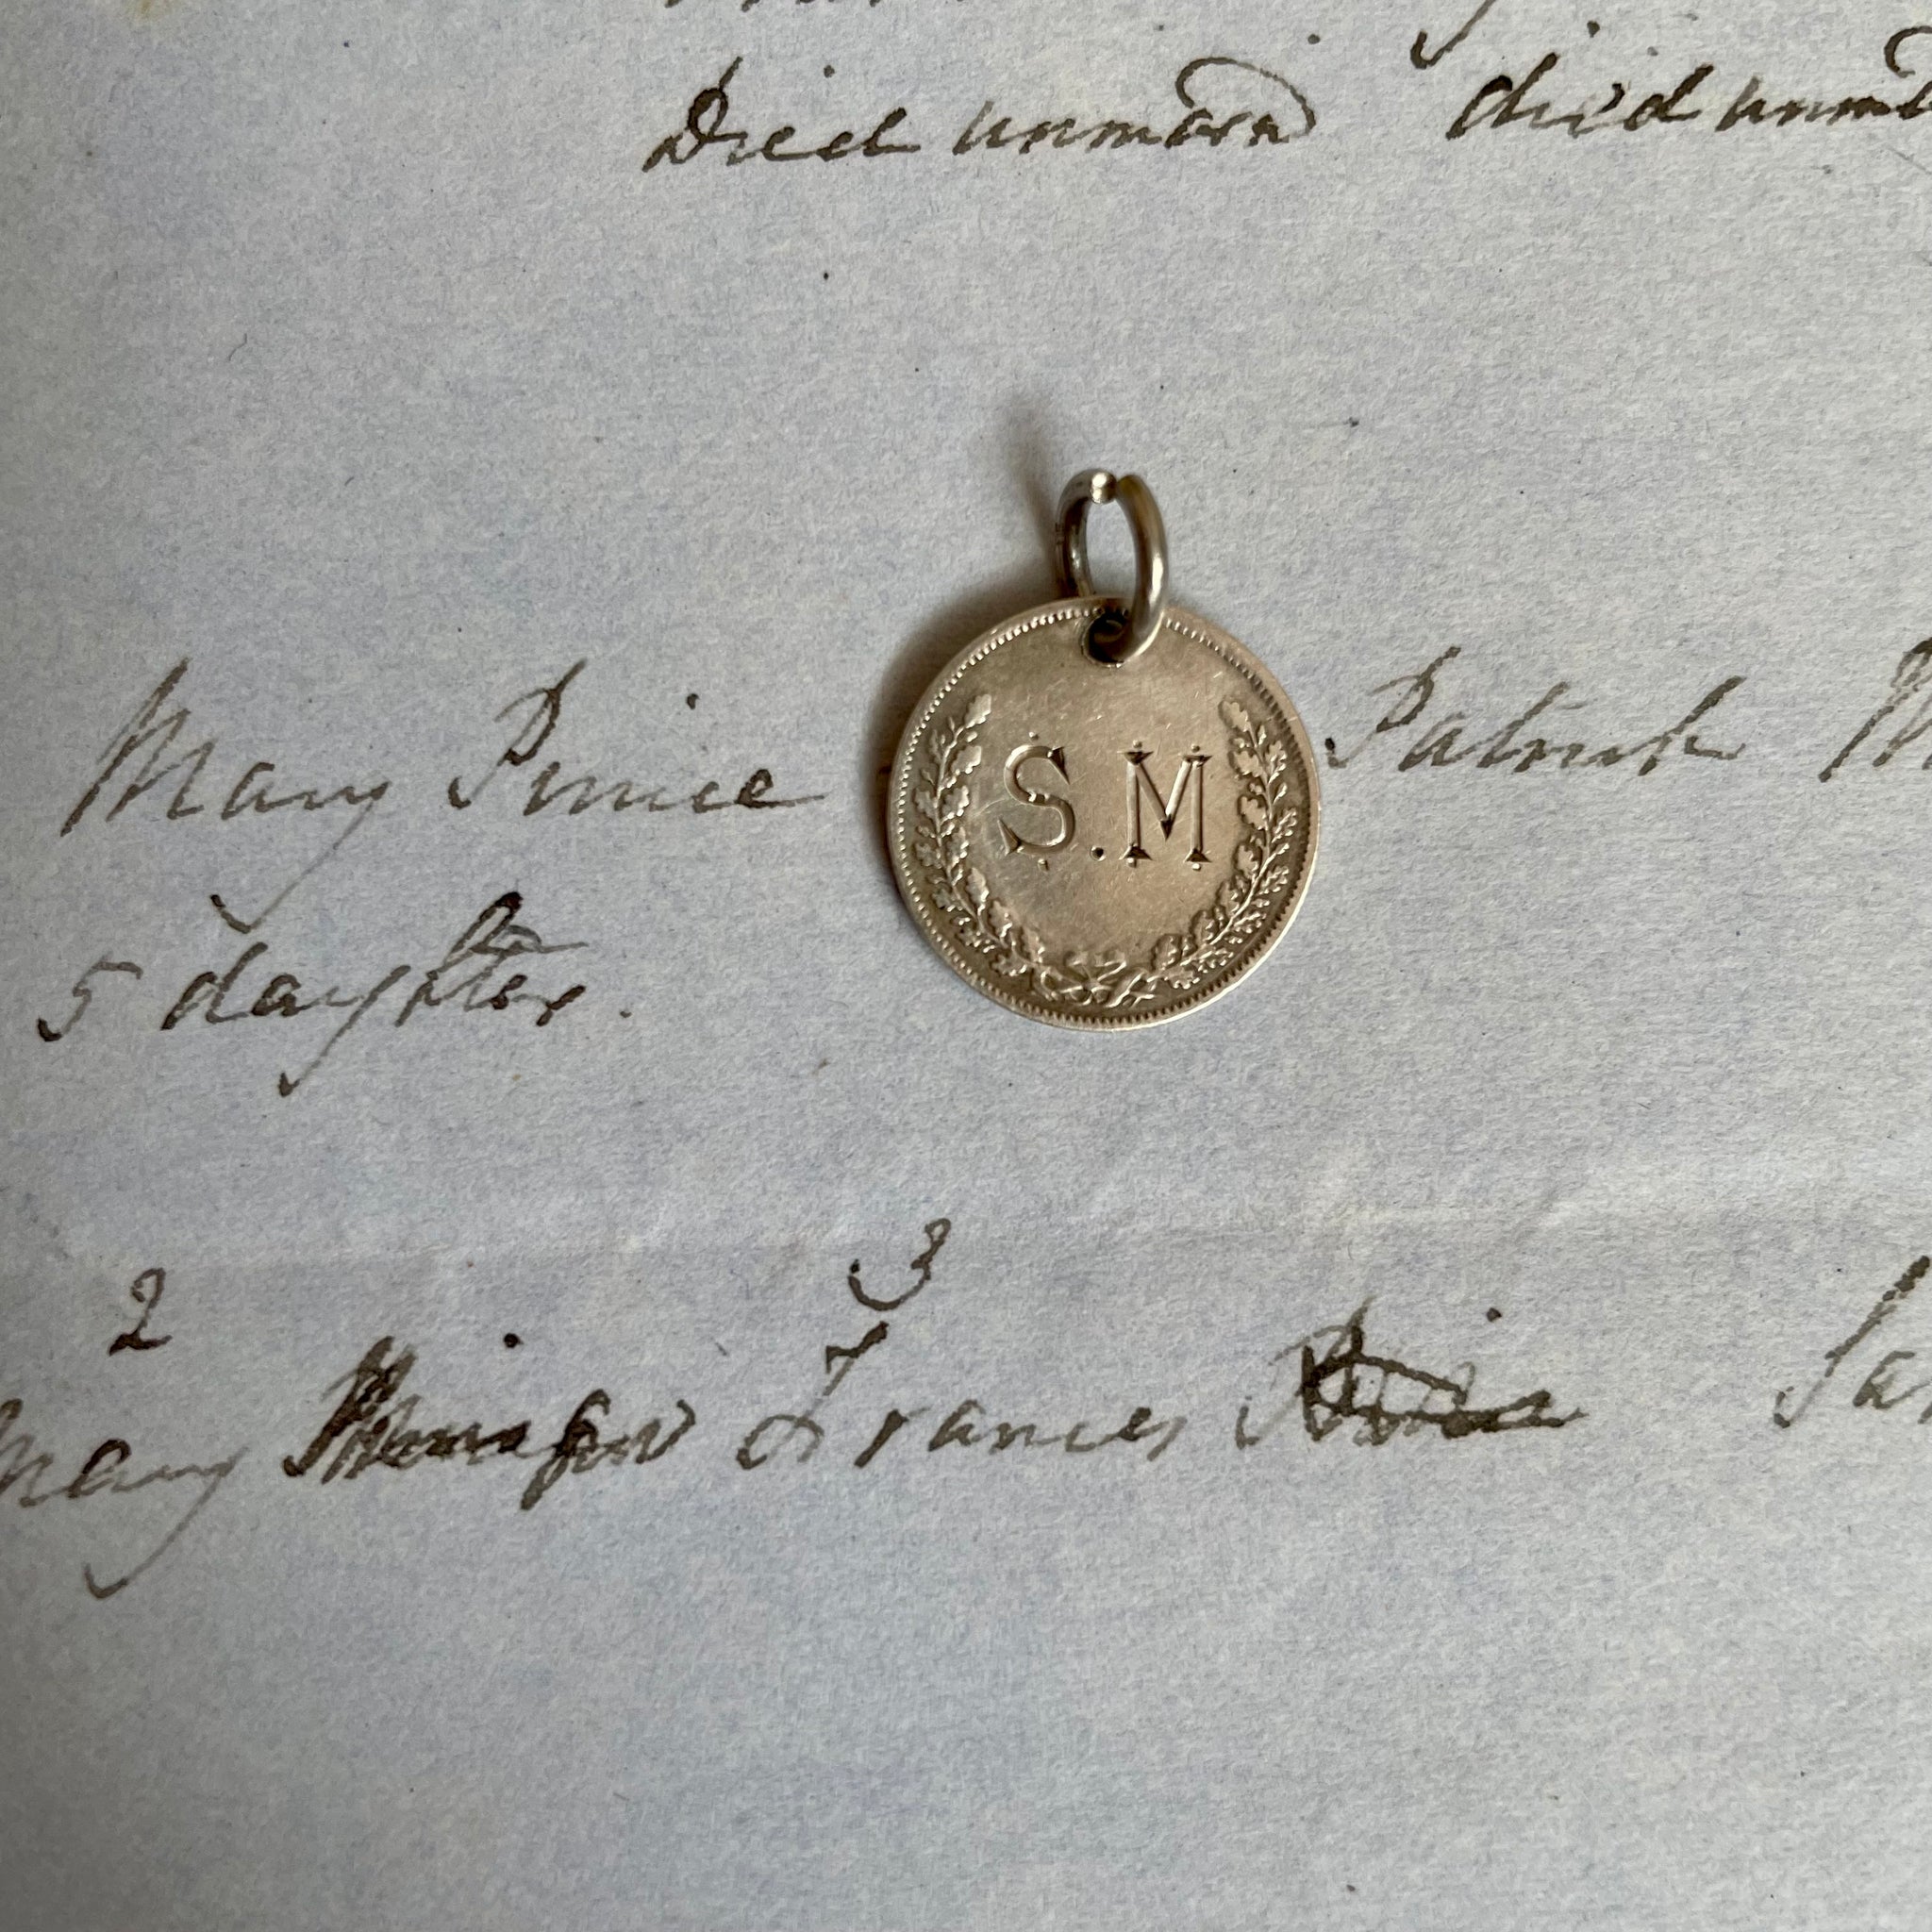 Died unmarrd died unmd
Mary Prince Patrick
S.M
5 daughter.
2 3
Mary Frances